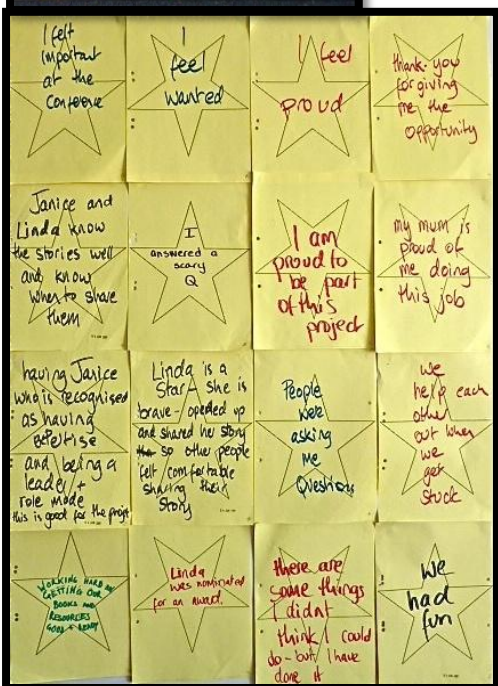 I felt
important
at the
Conference
I
feel
wanted
I feel
proud
thank-you
for giving
me the
opportunity
Janice and
Linda know
the stories well
and know
when to share
them
I
answered a
scary
Q
I am
proud to
be part
of this
project
my mum is
proud of
me doing
this job
having Janice
who is recognised
as having
expertise
and being a
leader +
role mode
this is good for the projet
Linda is a
Star - she is
brave - opened up
and shared her story
so other people
felt comfortable
sharing their
Story
People
were
asking
me
Questions
we
help each
other
out when
we
get
stuck
WORKING HARD ON
GETTING OUR
BOOKS AND
RESOURCES
GOOD + READY
Linda
was nominated
for an award.
there are
some things
I didnt
think I could
do - but I have
done it
We
had
fun